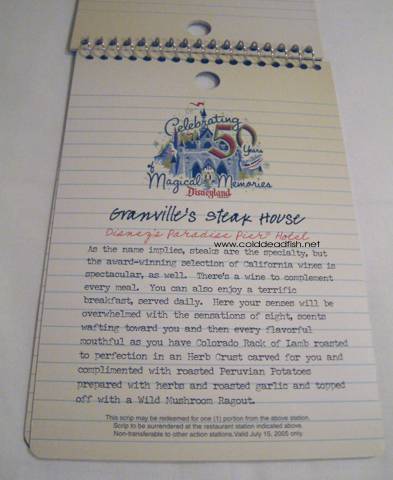 Celebrating
50 Years
of
Magical Memories
Disneyland
Granville's Steak House
Disney's Paradise Pier® Hotel
www.colddeadfish.net
As the name implies, steaks are the specialty, but
the award-winning selection of California wines is
spectacular, as well. There's a wine to complement
every meal. You can also enjoy a terrific
breakfast, served daily. Here your senses will be
overwhelmed with the sensations of sight, scents
wafting toward you and then every flavorful
mouthful as you have Colorado Rack of Lamb roasted
to perfection in an Herb Crust carved for you and
complimented with roasted Peruvian Potatoes
prepared with herbs and roasted garlic and topped
off with a Wild Mushroom Ragout.
This scrip may be redeemed for one (1) portion from the above station.
Scrip to be surrendered at the restaurant station indicated above.
Non-transferable to other action stations.Valid July 15, 2005 only.